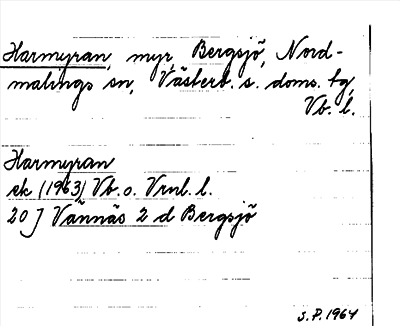 Harmyran, myr, Bergsjö, Nord-
malings sn, Västerb. s. doms. tg,
Vb. l.
Harmyran
ek (1963) Vb. o. Vrnl. l.
20 J Vännäs 2 d Bergsjö
S.P. 1964